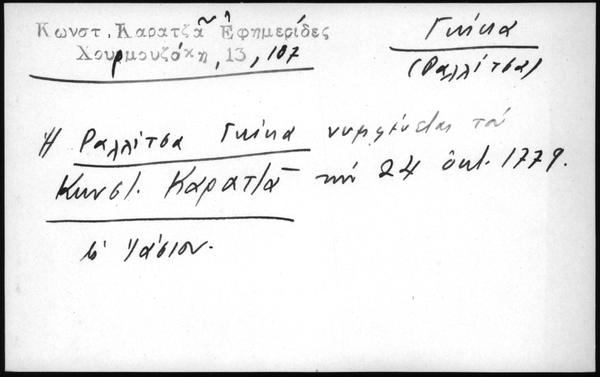 Κωνστ. Καρατζᾶ Ἐφημερίδες
Χουρμουζάκη, 13, 107
Γκίκα
(Ραλλίτσα)
Ἡ Ραλλίτσα Γκίκα νυμφεύεται τόν
Κωνστ. Καρατζᾶ τήν 24 Ὀκτ. 1779.
Ἰάσιον.